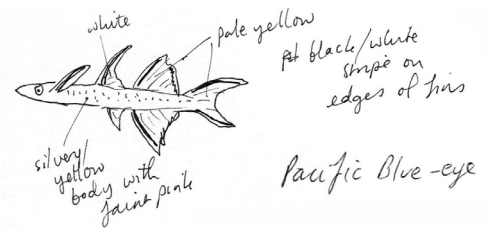 white
pale yellow
black/white
stripe on
edges of fins
silvery/
yellow
body with
faint pink
Pacific Blue-eye